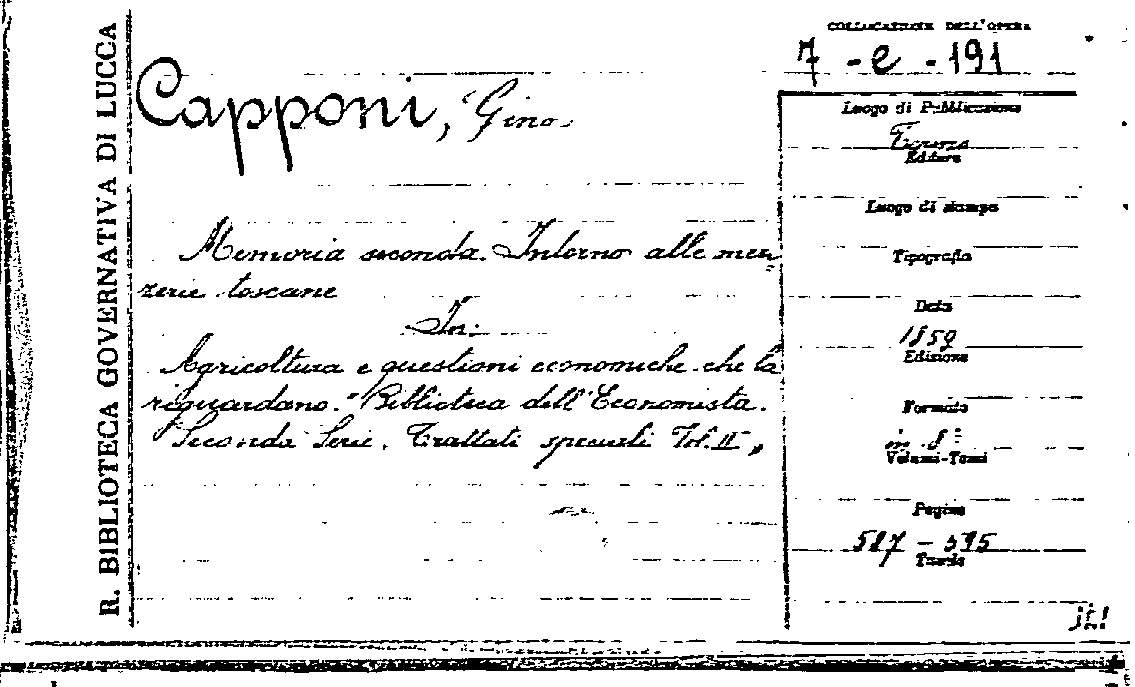 R. BIBLIOTECA GOVERNATIVA DI LUCCA
COLLOCAZIONE DELL'OPERA
7 - e - 191
Capponi, Gino
Luogo di Pubblicazione
Torino
Editore
Luogo di stampa
Memoria seconda. Intorno alle mez=
zerie toscane
Tipografia
In:
Data
1859
Agricoltura e questioni economiche che la
Edizione
riguardano. "Biblioteca dell'Economista.
Formato
Seconda Serie. Trattati speciali Vol. II"
in 8°
Volumi-Tomi
Pagine
587 - 595
Tavole